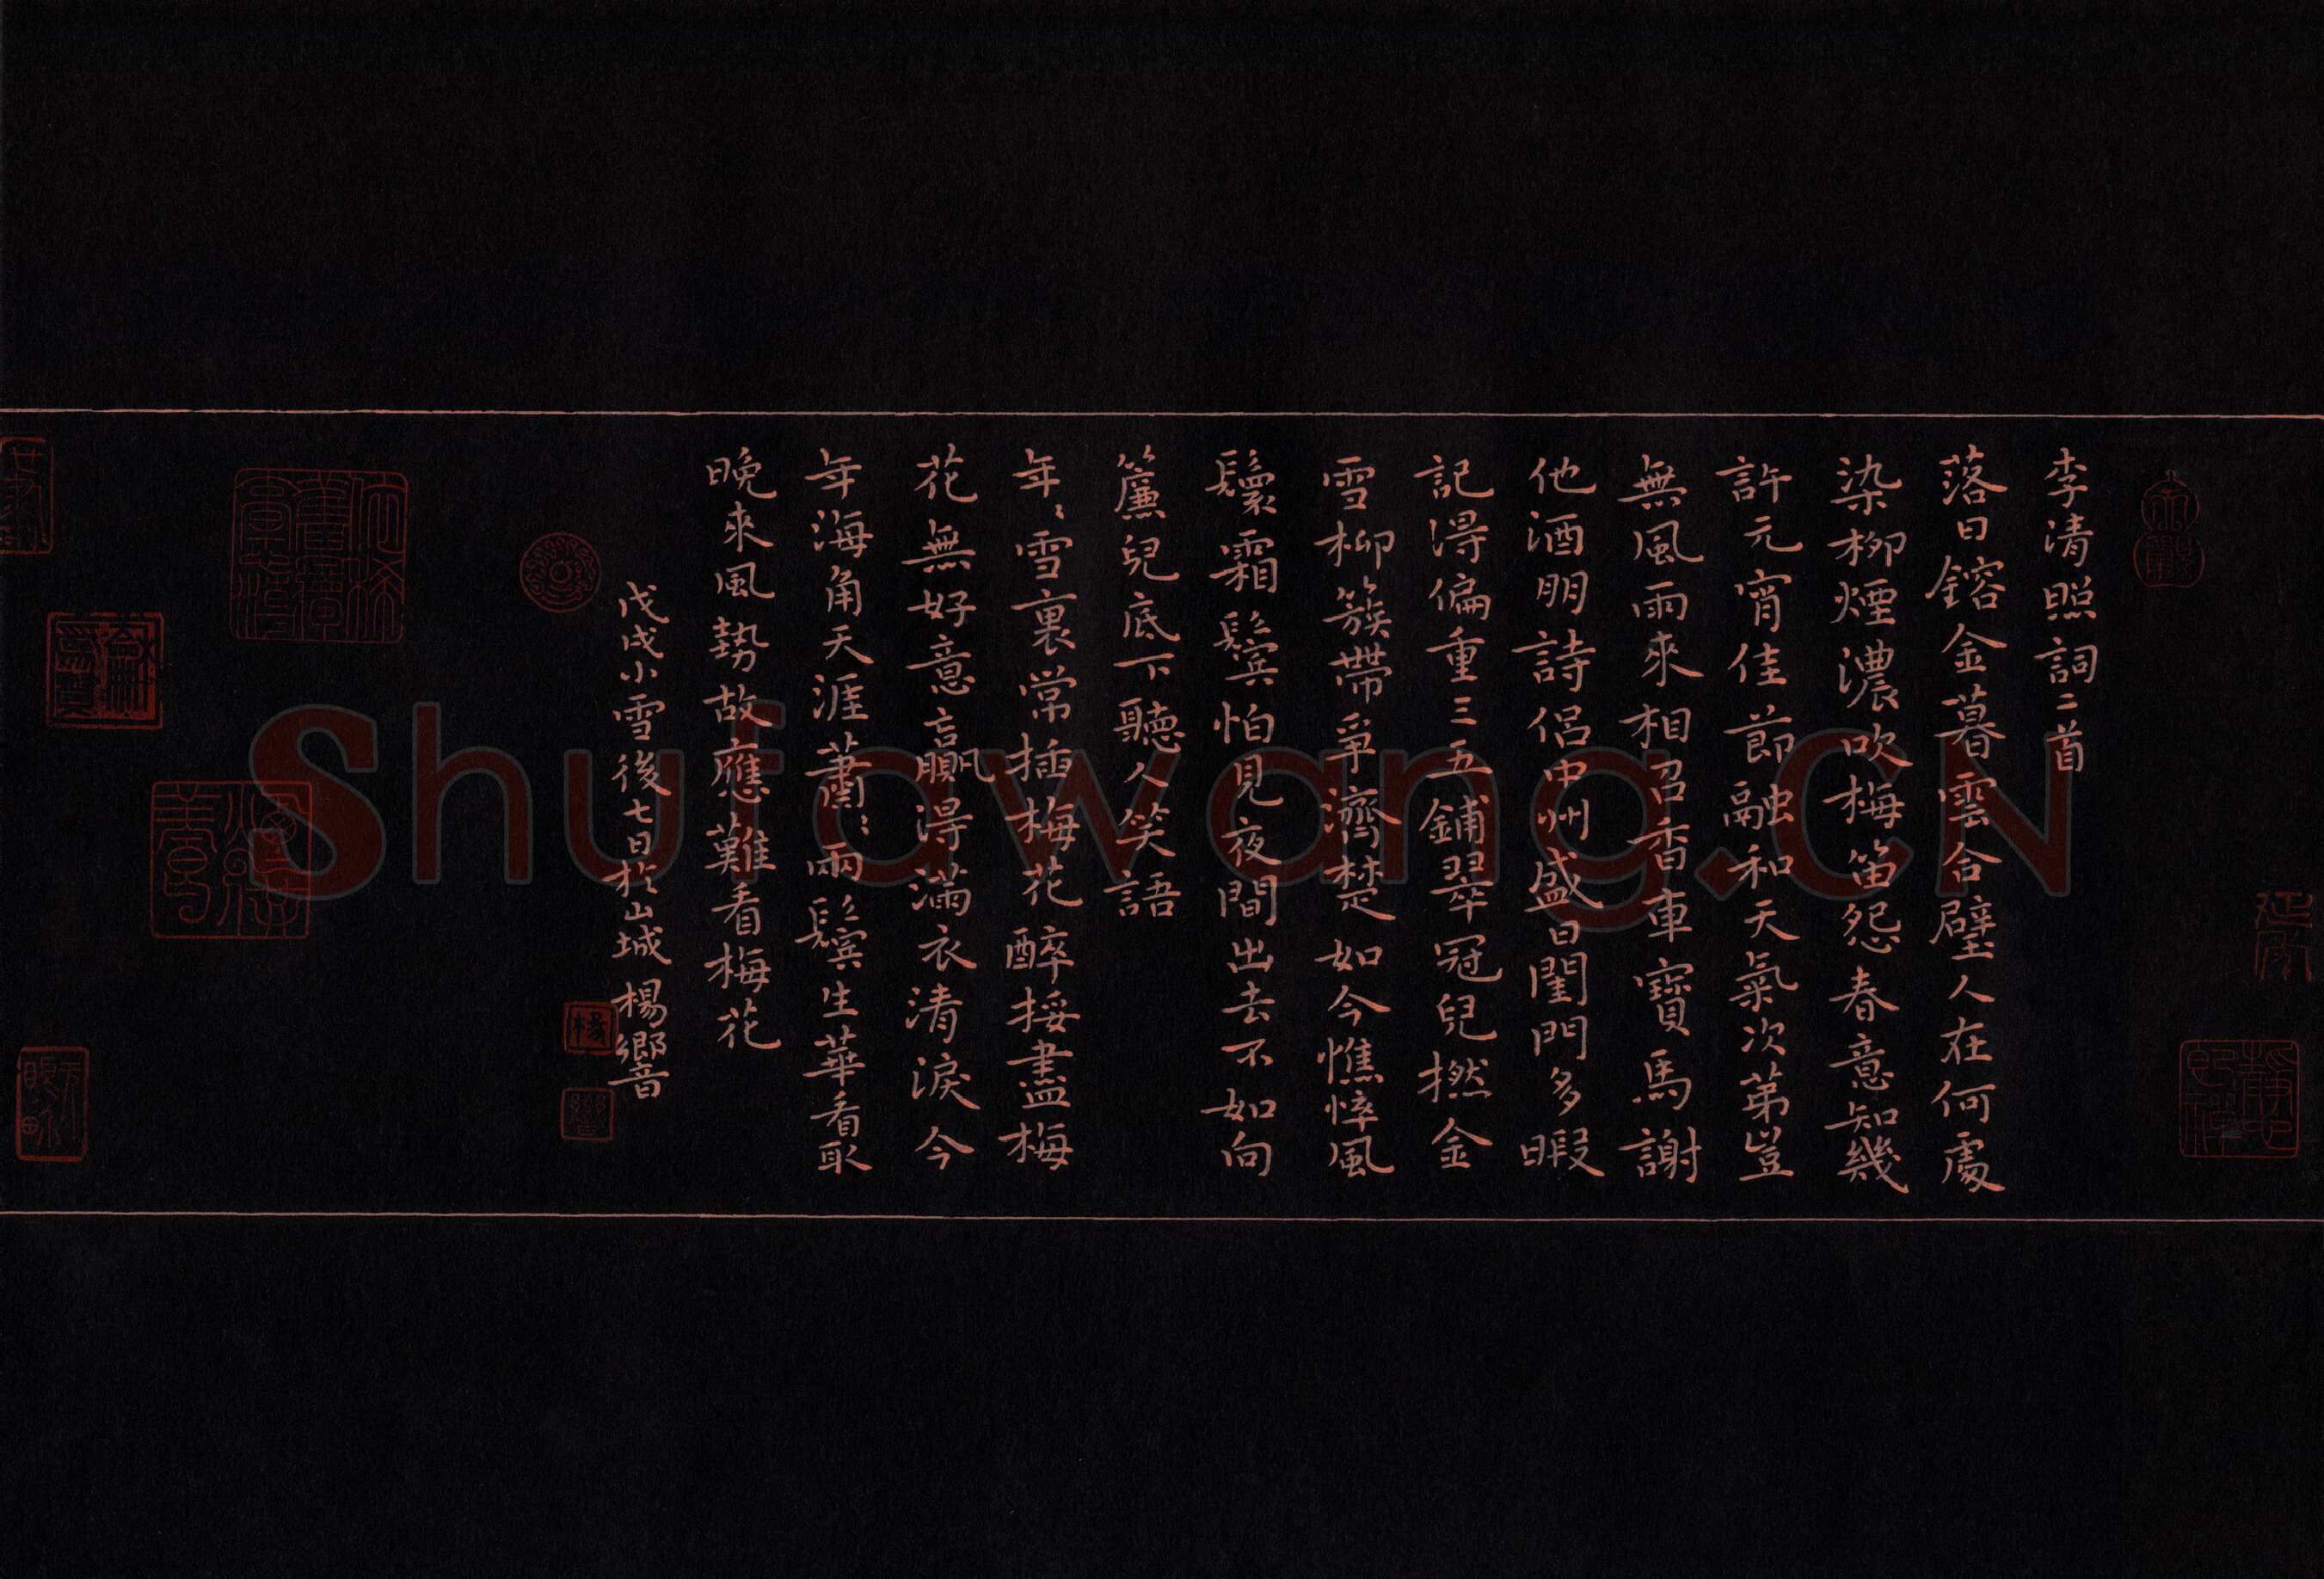 李清照詞二首
落日鎔金暮雲合璧人在何處
染柳煙濃吹梅笛怨春意知幾
許元宵佳節融和天氣次第豈
無風雨來相召香車寶馬謝
他酒朋詩侶中州盛日閨門多暇
記得偏重三五鋪翠冠兒撚金
雪柳簇帶爭濟楚如今憔悴風
鬟霜鬢怕見夜間出去不如向
簾兒底下聽人笑語
年〻雪裏常插梅花醉挼盡梅
花無好意贏得滿衣清淚今
年海角天涯蕭〻兩鬢生華看取
晚來風勢故應難看梅花
戊戌小雪後七日於山城楊鄉音
Shufawang.CN